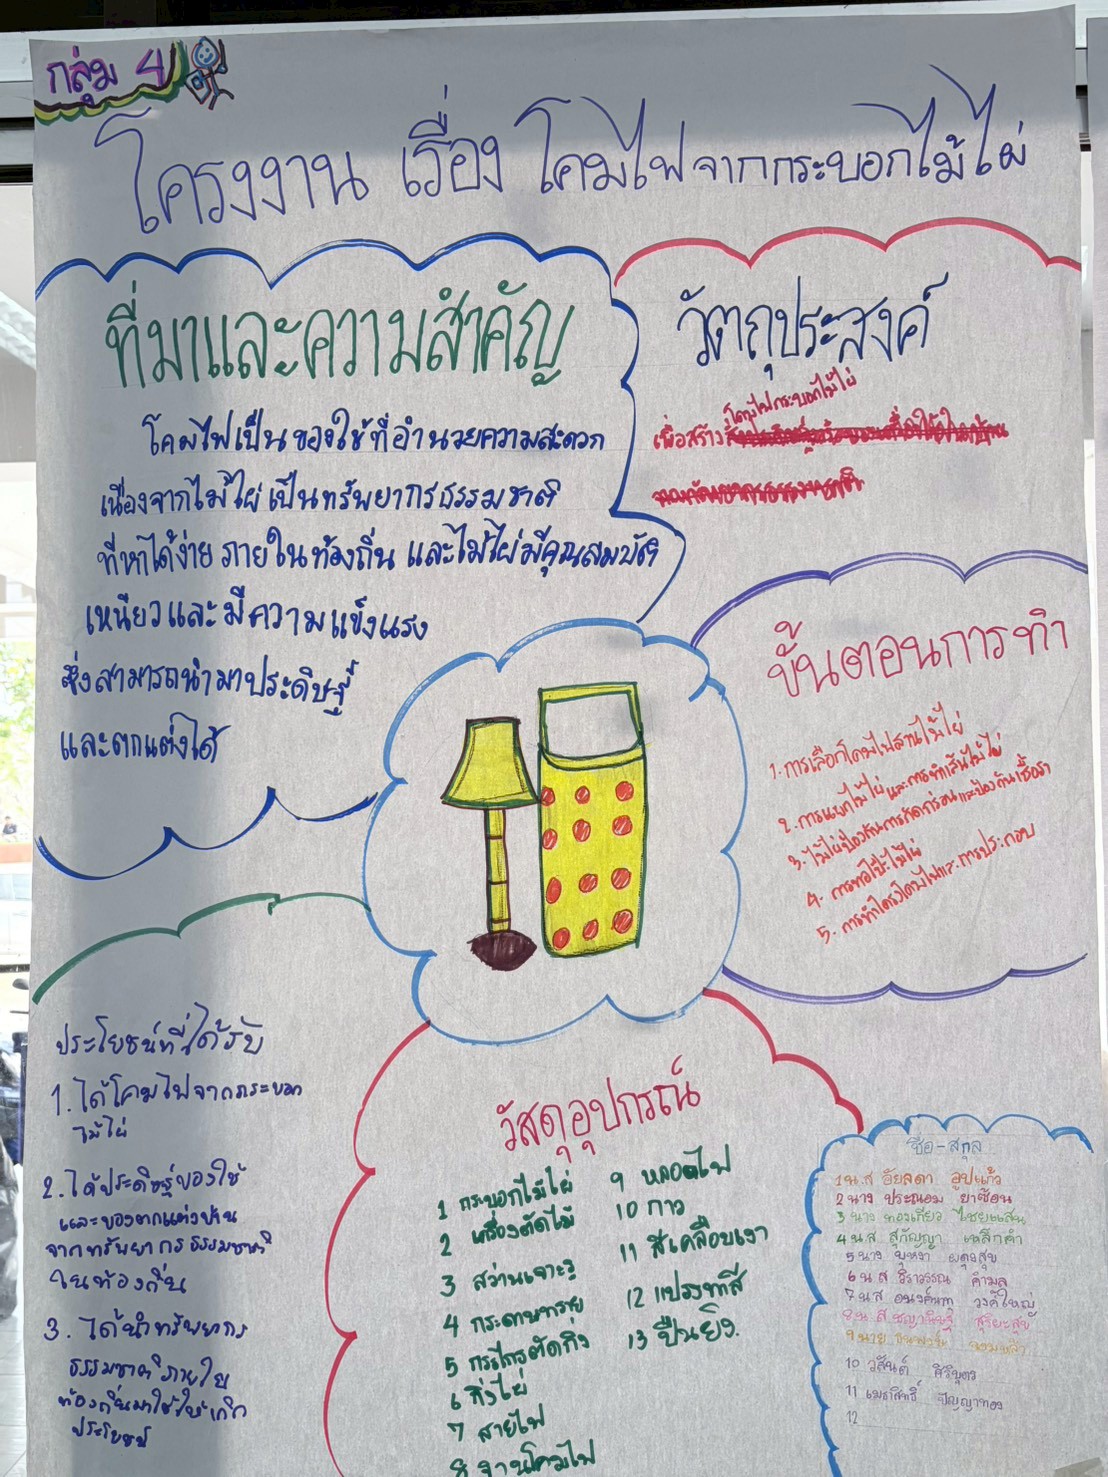 กลุ่ม 4
โครงงาน เรื่อง โคมไฟจากกระบอกไม้ไผ่
ที่มาและความสำคัญ
โคมไฟเป็นของใช้ที่อำนวยความสะดวก
เนื่องจากไม้ไผ่เป็นทรัพยากรธรรมชาติ
ที่หาได้ง่าย ภายในท้องถิ่น และไม้ไผ่มีคุณสมบัติ
เหนียวและมีความแข็งแรง
ซึ่งสามารถนำมาประดิษฐ์
และตกแต่งได้
วัตถุประสงค์
โคมไฟกระบอกไม้ไผ่
เพื่อสร้าง
ขั้นตอนการทำ
1. การเลือกโคมไฟสานไม้ไผ่
2. การแยกไม้ไผ่ และการทำเส้นไม้ไผ่
3. ไม้ไผ่ป้องกันการกัดกร่อนและป้องกันเชื้อรา
4. การทอโป๊ะไม้ไผ่
5. การทำโครงโคมไฟและการประกอบ
ประโยชน์ที่ได้รับ
1. ได้โคมไฟจากกระบอก
ไม้ไผ่
2. ได้ประดิษฐ์ของใช้
และของตกแต่งบ้าน
จากทรัพยากรธรรมชาติ
ในท้องถิ่น
3. ได้นำทรัพยากร
ธรรมชาติภายใน
ท้องถิ่นมาใช้ให้เกิด
ประโยชน์
วัสดุอุปกรณ์
1 กระบอกไม้ไผ่
2 เครื่องตัดไม้
3 สว่านเจาะรู
4 กระดาษทราย
5 กรรไกรตัดกิ่ง
6 กิ่งไผ่
7 สายไฟ
8 ฐานโคมไฟ
9 หลอดไฟ
10 กาว
11 สีเคลือบเงา
12 แปรงทาสี
13 ปืนยิง.
ชื่อ-สกุล
1 น.ส อัยลดา อูปแก้ว
2 นาง ประณอม ยาซ้อน
3 นาง ทองเกียว ไชยแสน
4 น.ส สุกัญญา เหล็กคำ
5 นาง บุหงา ผดุงสุข
6 น.ส ธิราวรรณ คำมูล
7 น.ส อนงค์นาฏ วงค์ใหญ่
8 น.ส สุริยะสุข
9 นาย
10 วสันต์ ศิริบุตร
11 เมธาสิทธิ์ ปัญญาทอง
12